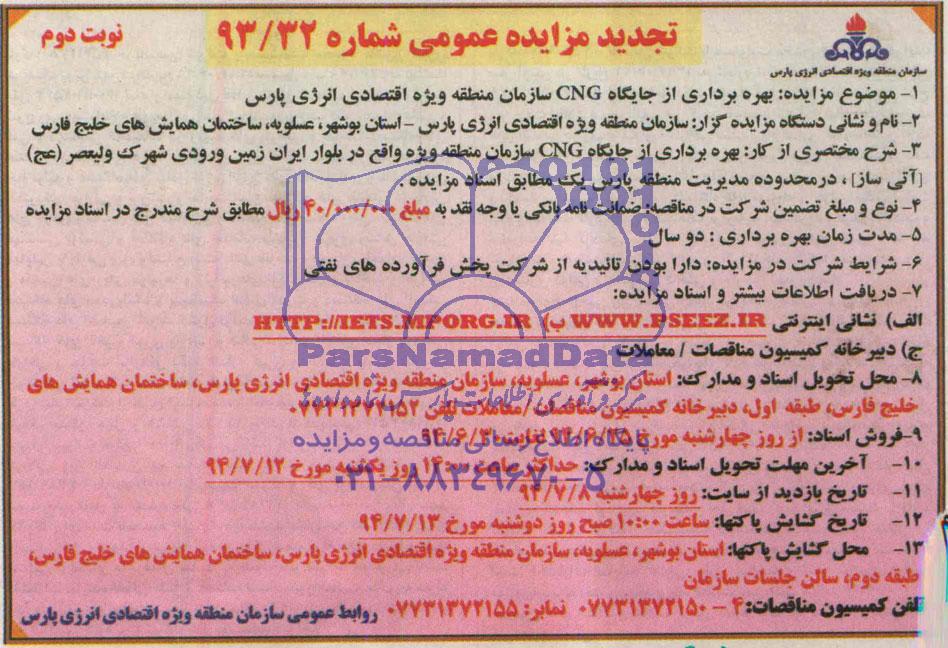 تجدید مزایده عمومی شماره ۹۳/۳۲
نوبت دوم
سازمان منطقه ویژه اقتصادی انرژی پارس
۱- موضوع مزایده: بهره برداری از جایگاه CNG سازمان منطقه ویژه اقتصادی انرژی پارس
۲- نام و نشانی دستگاه مزایده گزار: سازمان منطقه ویژه اقتصادی انرژی پارس - استان بوشهر، عسلویه، ساختمان همایش های خلیج فارس
۳- شرح مختصری از کار: بهره برداری از جایگاه CNG سازمان منطقه ویژه واقع در بلوار ایران زمین ورودی شهرک ولیعصر (عج)
[آتی ساز] ، درمحدوده مدیریت منطقه پارس یک مطابق اسناد مزایده .
۴- نوع و مبلغ تضمین شرکت در مناقصه: ضمانت نامه بانکی یا وجه نقد به مبلغ ۴۰/۰۰۰/۰۰۰ ریال مطابق شرح مندرج در اسناد مزایده
۵- مدت زمان بهره برداری : دو سال
۶- شرایط شرکت در مزایده: دارا بودن تائیدیه از شرکت پخش فرآورده های نفتی
۷- دریافت اطلاعات بیشتر و اسناد مزایده:
الف) نشانی اینترنتی WWW.PSEEZ.IR ب) HTTP://IETS.MPORG.IR
ParsNamadData
ج) دبیرخانه کمیسیون مناقصات / معاملات
۸- محل تحویل اسناد و مدارک: استان بوشهر، عسلویه، سازمان منطقه ویژه اقتصادی انرژی پارس، ساختمان همایش های
خلیج فارس، طبقه اول، دبیرخانه کمیسیون مناقصات / معاملات تلفن ۰۷۷۳۱۳۷۲۱۵۲
۹-فروش اسناد: از روز چهارشنبه مورخ ۹۴/۶/۲۵ لغایت ۹۴/۶/۳۱
پایگاه اطلاع رسانی مناقصه و مزایده
۱۰- آخرین مهلت تحویل اسناد و مدارک: حداکثر ساعت ۱۴:۰۰ روز یکشنبه مورخ ۹۴/۷/۱۲
۰۲۱-۸۸۳۴۹۶۷۰-۵
۱۱- تاریخ بازدید از سایت: روز چهارشنبه ۹۴/۷/۸
۱۲- تاریخ گشایش پاکتها: ساعت ۱۰:۰۰ صبح روز دوشنبه مورخ ۹۴/۷/۱۳
۱۳- محل گشایش پاکتها: استان بوشهر، عسلویه، سازمان منطقه ویژه اقتصادی انرژی پارس، ساختمان همایش های خلیج فارس،
طبقه دوم، سالن جلسات سازمان
تلفن کمیسیون مناقصات: ۴ - ۰۷۷۳۱۳۷۲۱۵۰ نمابر: ۰۷۷۳۱۳۷۲۱۵۵ روابط عمومی سازمان منطقه ویژه اقتصادی انرژی پارس